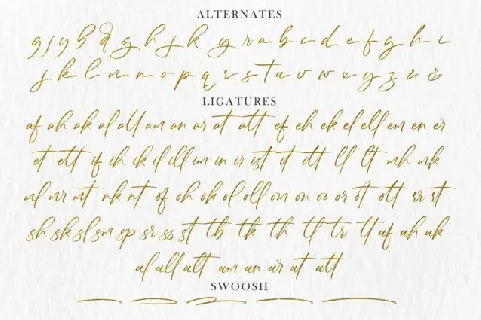 ALTERNATES
g j y b d g h j k y r a b c d e f g h i
j k l m n o p q r s t u v w x y z
LIGATURES
af ah ak al all am an ar at att ef eh ek el ell em en er
et ett if ih ik il ill im in ir ist it itt ll lt nh nk
nl nr nt rk rt of oh ok ol oll om on oo or ot ott rr rt
sh sk sl sm sp sr ss st tb tk th tl tr tt uf uh uk
ul ull ult um un ur ut utt
SWOOSH